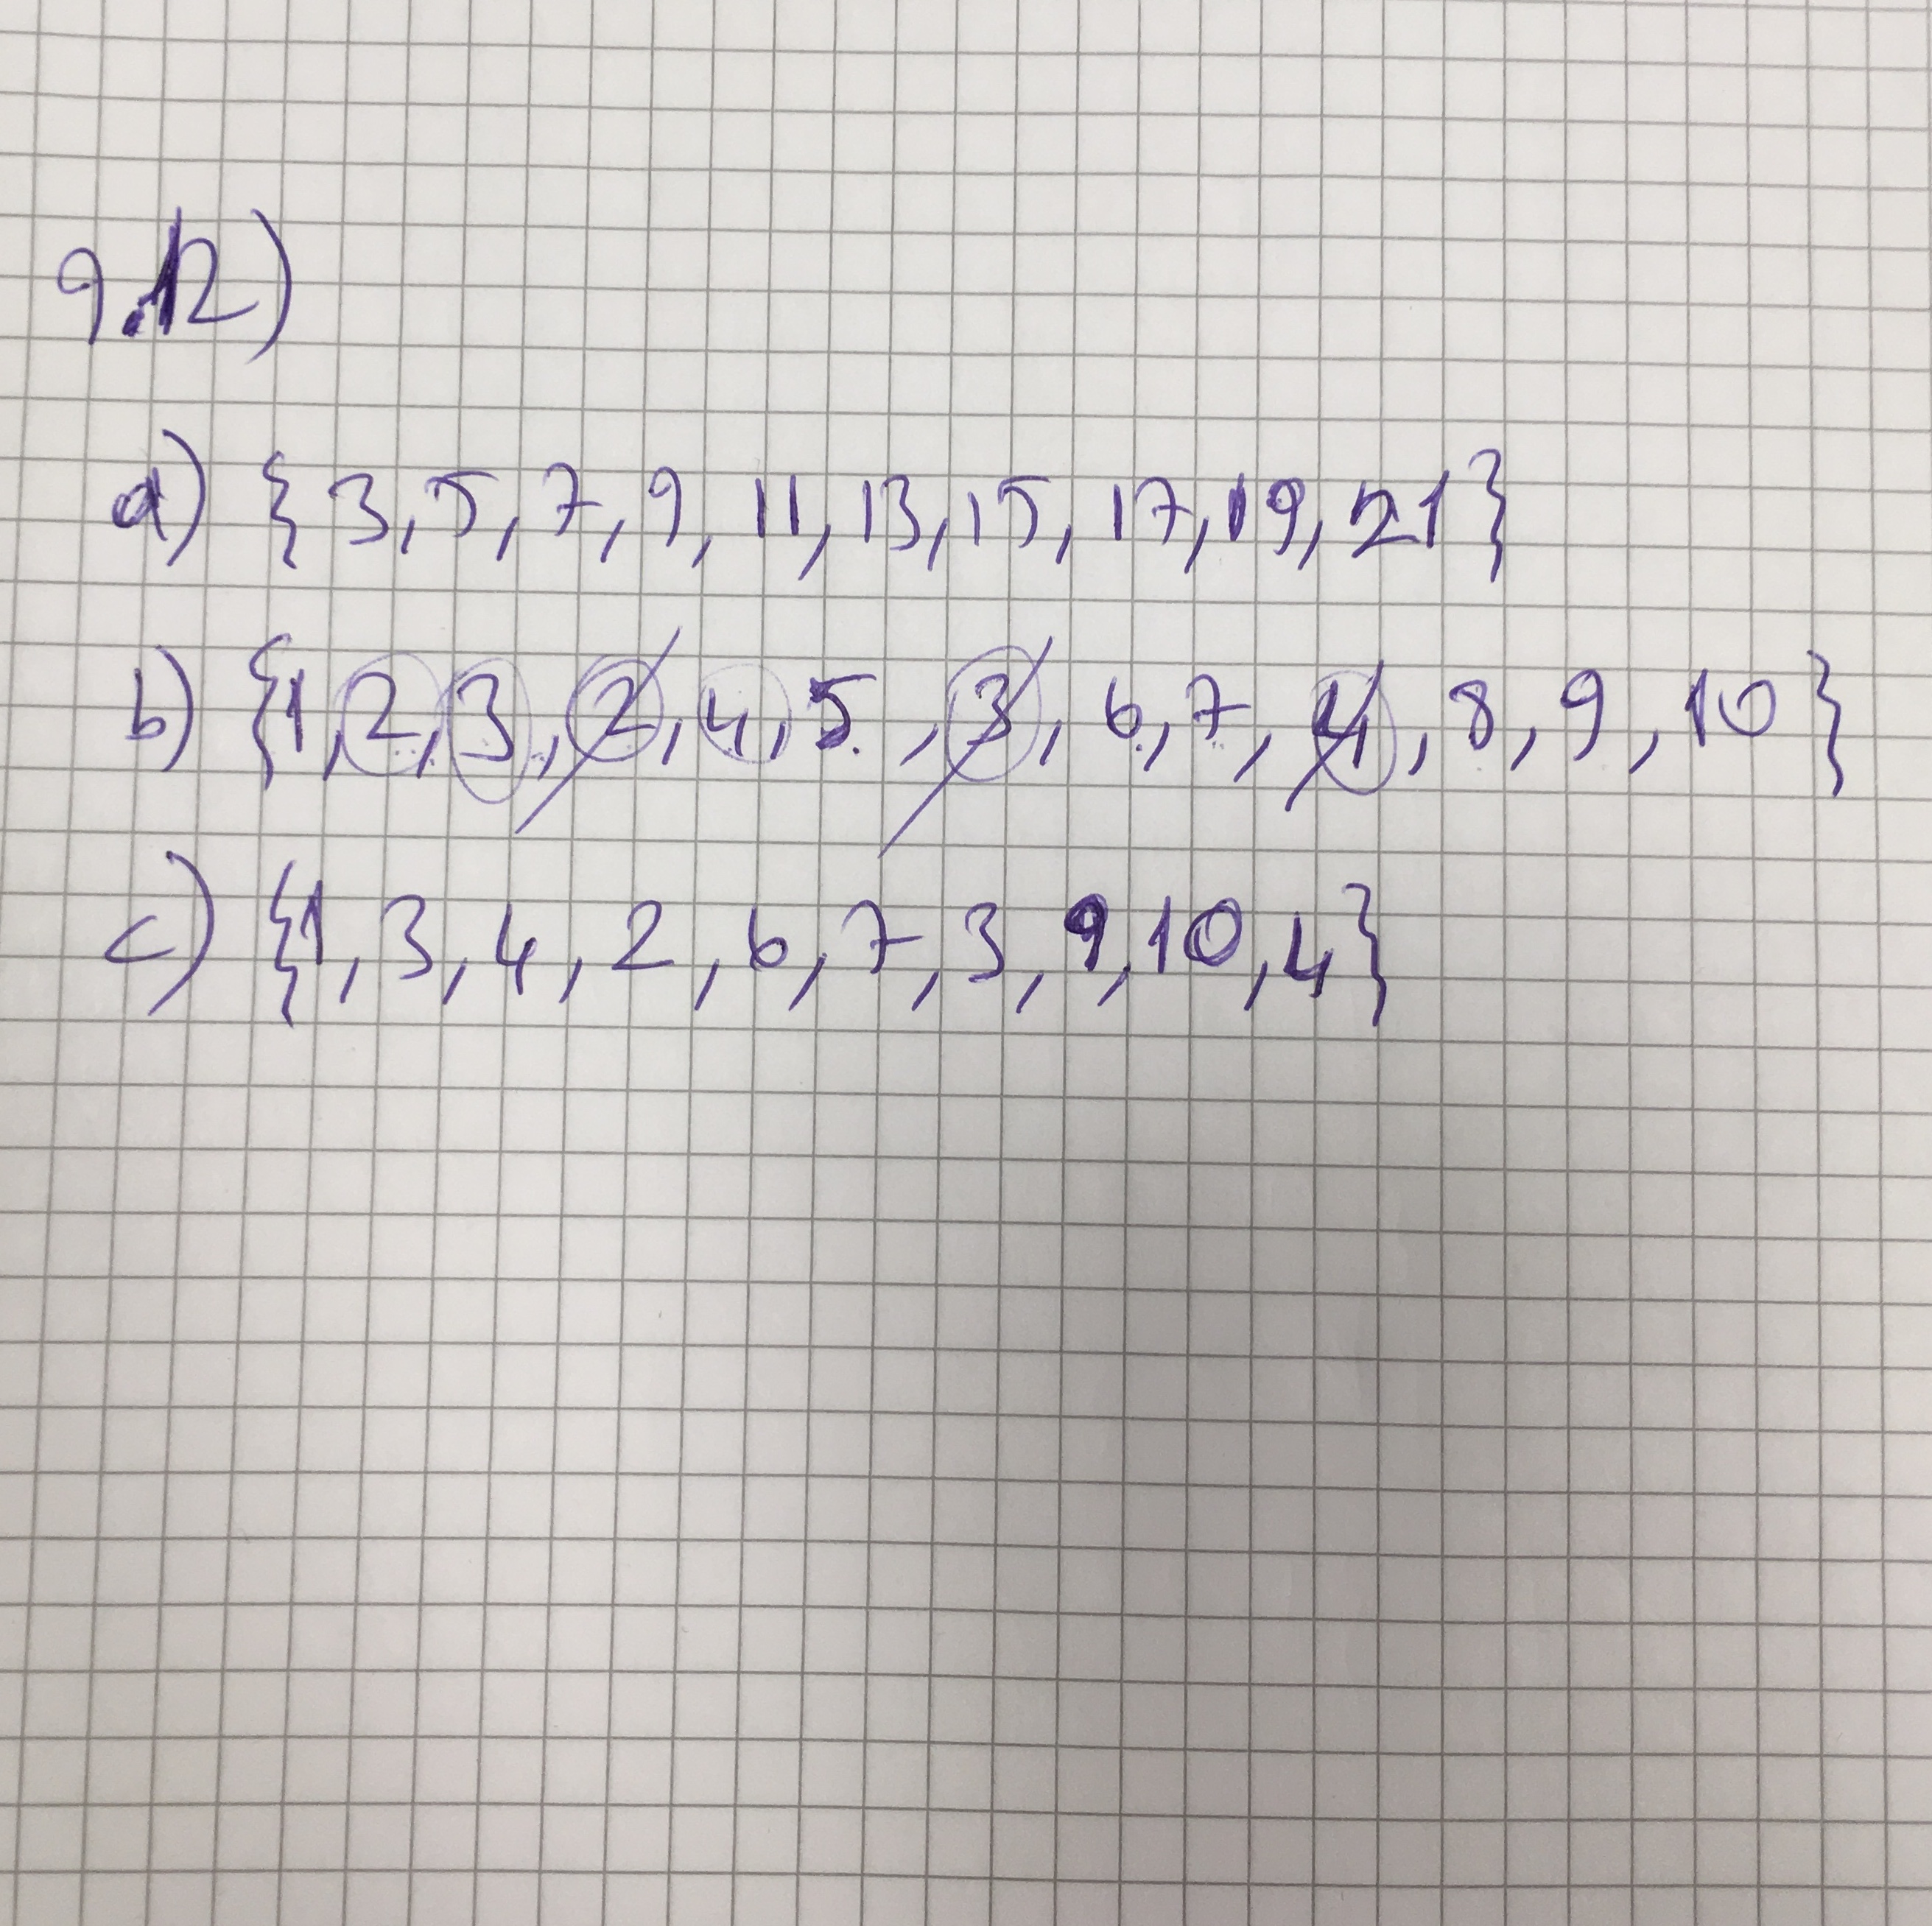 9.12)
a) {3,5,7,9,11,13,15,17,19,21}
b) {1,2,3,2,4,5,3,6,7,4,8,9,10}
c) {1,3,4,2,6,7,3,9,10,4}